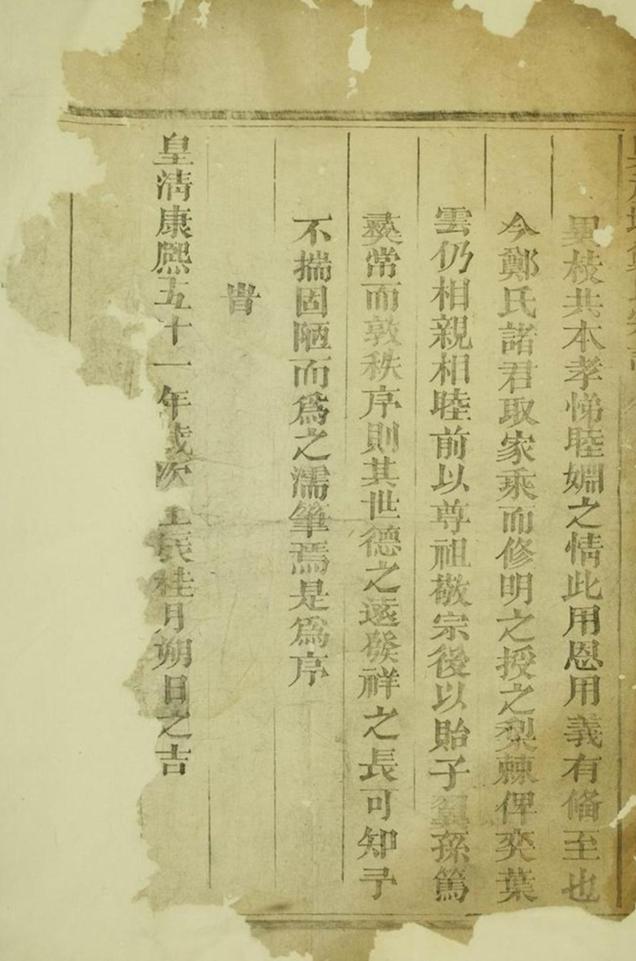 異枝共本孝悌睦婣之情此用恩用義有偹至也
今鄭氏諸君取家乘而修明之授之梨棘俾奕葉
雲仍相親相睦前以尊祖敬宗後以貽子翼孫篤
彞常而敦秩序則其世德之遠發祥之長可知予
不揣固陋而爲之濡筆焉是爲序
旹
皇清康熙五十一年歲次壬辰桂月朔日之吉